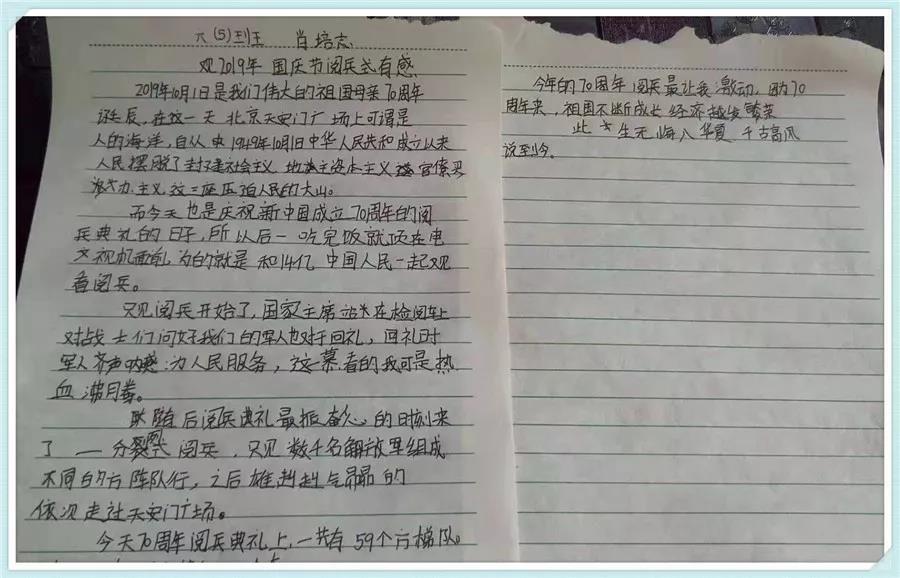 六(5)班 肖培志
观2019年 国庆节阅兵式有感
2019年10月1日是我们伟大的祖国母亲70周年
诞辰,在这一天 北京天安门广场上可谓是
人的海洋,自从 1949年10月1日中华人民共和成立以来
人民摆脱了封建社会主义 地主资本主义 官僚买
办主义 这三座压迫人民的大山。
而今天也是庆祝新中国成立70周年的阅
兵典礼的日子,所以后一吃完饭就顶在电
视机面前,为的就是和14亿 中国人民一起观
看阅兵。
只见阅兵开始了,国家主席站在检阅车上
对战士们问好我们的军人也对于回礼,回礼时
军人齐声呐喊:为人民服务,这一幕看的我可是热
血沸腾。
随后阅兵典礼最振奋人心的时刻来
了——分列式阅兵,只见数千名解放军组成
不同的方阵队行,之后雄赳赳气昂昂的
依次走过天安门广场。
今天70周年阅兵典礼上,一共有59个方梯队。
今年的70周年阅兵最让我激动,因为70
周年来,祖国不断成长 经济越发繁荣
此生无悔入华夏 千古高风
说到今。